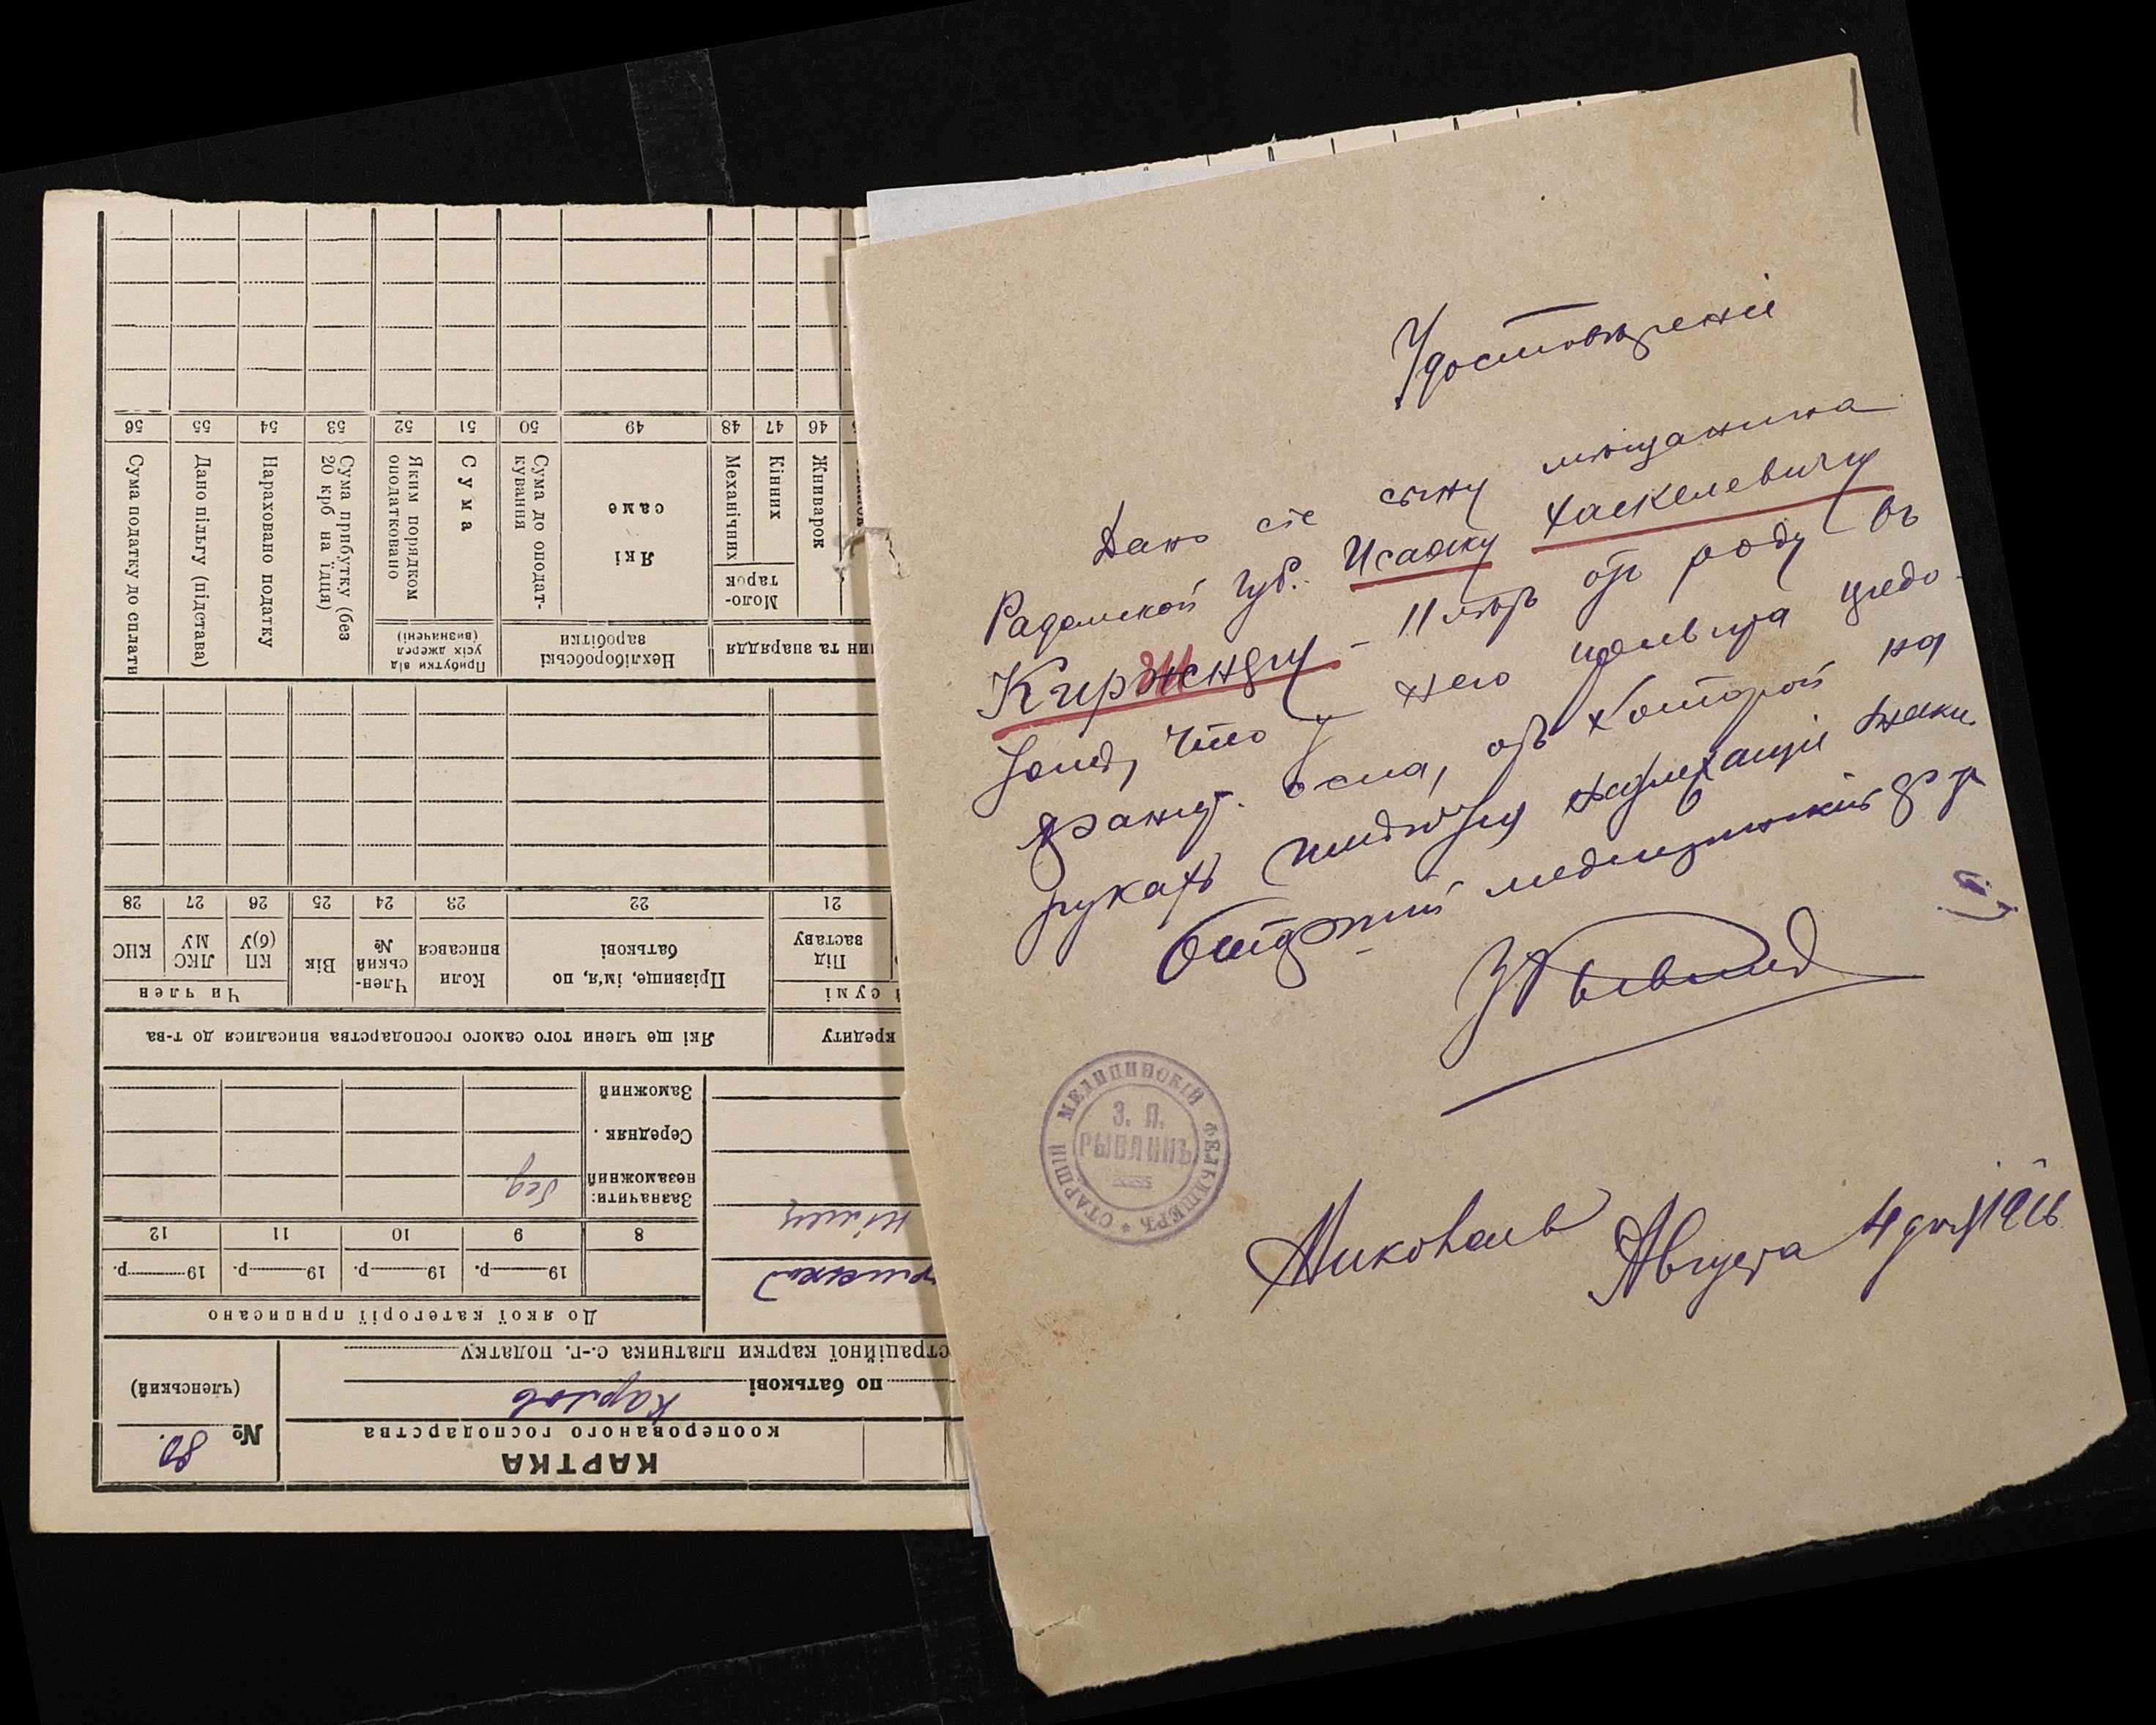 Удостовѣренiе
Дано сiе сыну мѣщанина
Радомской губ. Исааку Хаскелевичу
Киржнеру - 11 лѣтъ отъ роду въ
томъ, что у него привита предо-
хранит. оспа, отъ которой на
рукахъ имѣются надлежащiе знаки.
Старшiй медицинскiй ф-ръ
ЗРывлинъ
СТАРШIЙ МЕДИЦИНСКIЙ ФЕЛЬДШЕРЪ *
З. Л.
РЫВЛИНЪ
Николаевъ Августа 4 дня 1916
КАРТКА
кооперованого господарства
№ 80.
(членський)
Карлов
по батькові
страційної картки платника с.-г. податку
До якої категорії приписано
19 р. 19 р. 19 р. 19 р.
8 9 10 11 12
Зазначити:
незаможний бед
Середняк.
Заможний
німец
кредиту
Які ще члени того самого господарства вписалися до т-ва
й сумі
Під заставу
Прізвище, ім'я, по батькові
Коли вписався
Член-ський №
Вік
Чи член
КП (б)У
ЛКС МУ
КНС
21 22 23 24 25 26 27 28
ин та знаряддя
Нехліборобські заробітки
Прибутки від усіх джерел (визначені)
Жниварок
Моло-тарок
Кінних
Механічних
Які саме
Сума до оподат-кування
Сума
Яким порядком оподатковано
Сума прибутку (без 20 крб на їдця)
Нараховано податку
Дано пільгу (підстава)
Сума податку до сплати
46 47 48 49 50 51 52 53 54 55 56